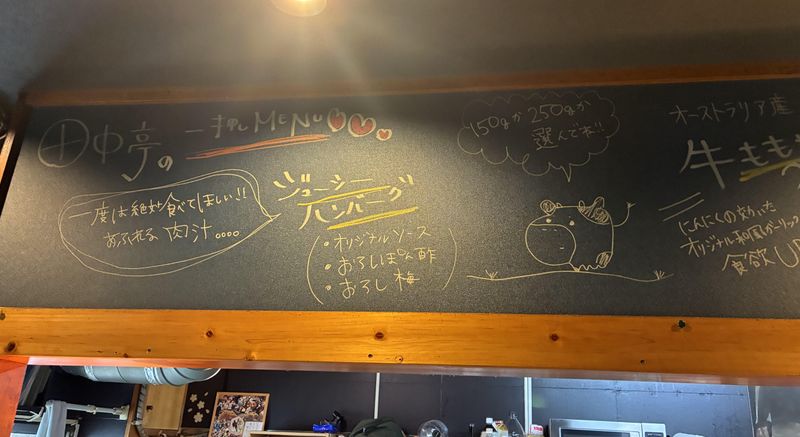 田中亭の一押しMENU
一度は絶対食べてほしい!!
あふれる肉汁....
ジューシー
ハンバーグ
(・オリジナルソース
・おろしぽん酢
・おろし梅)
150gか250gか
選んでネ!!
オーストラリア産
牛もも
にんにくの効いた
オリジナル和風ガーリック
食欲UP